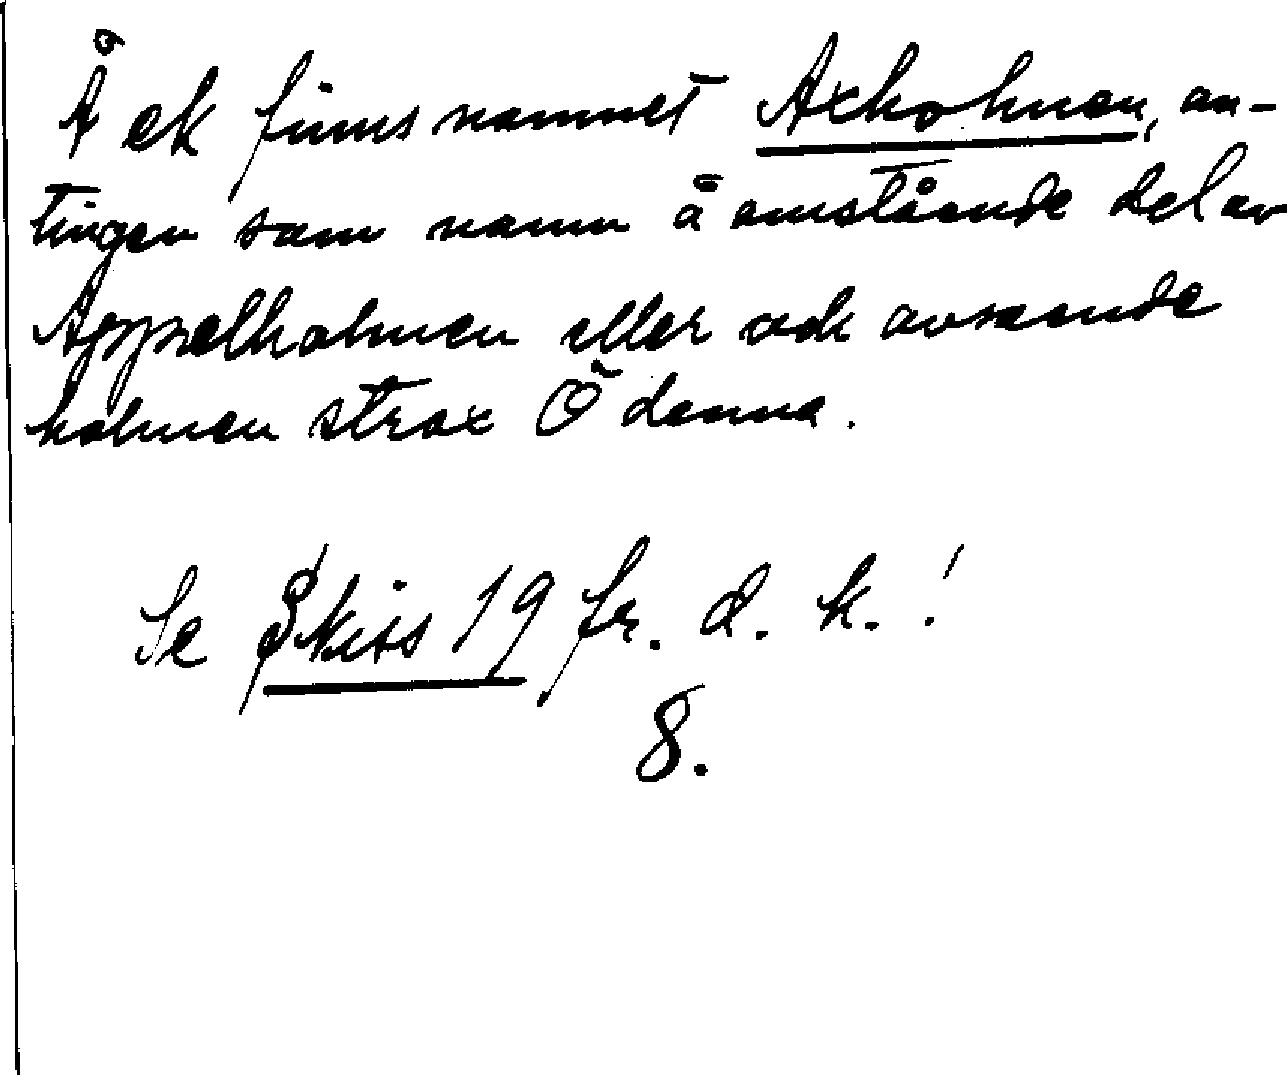 Å ek finns namnet Axholmen, an-
tingen som namn å omstående del av
Appelholmen eller ock avseende
holmen strax Ö denna.
Se Skiss 19 fr. d. k.!
8.